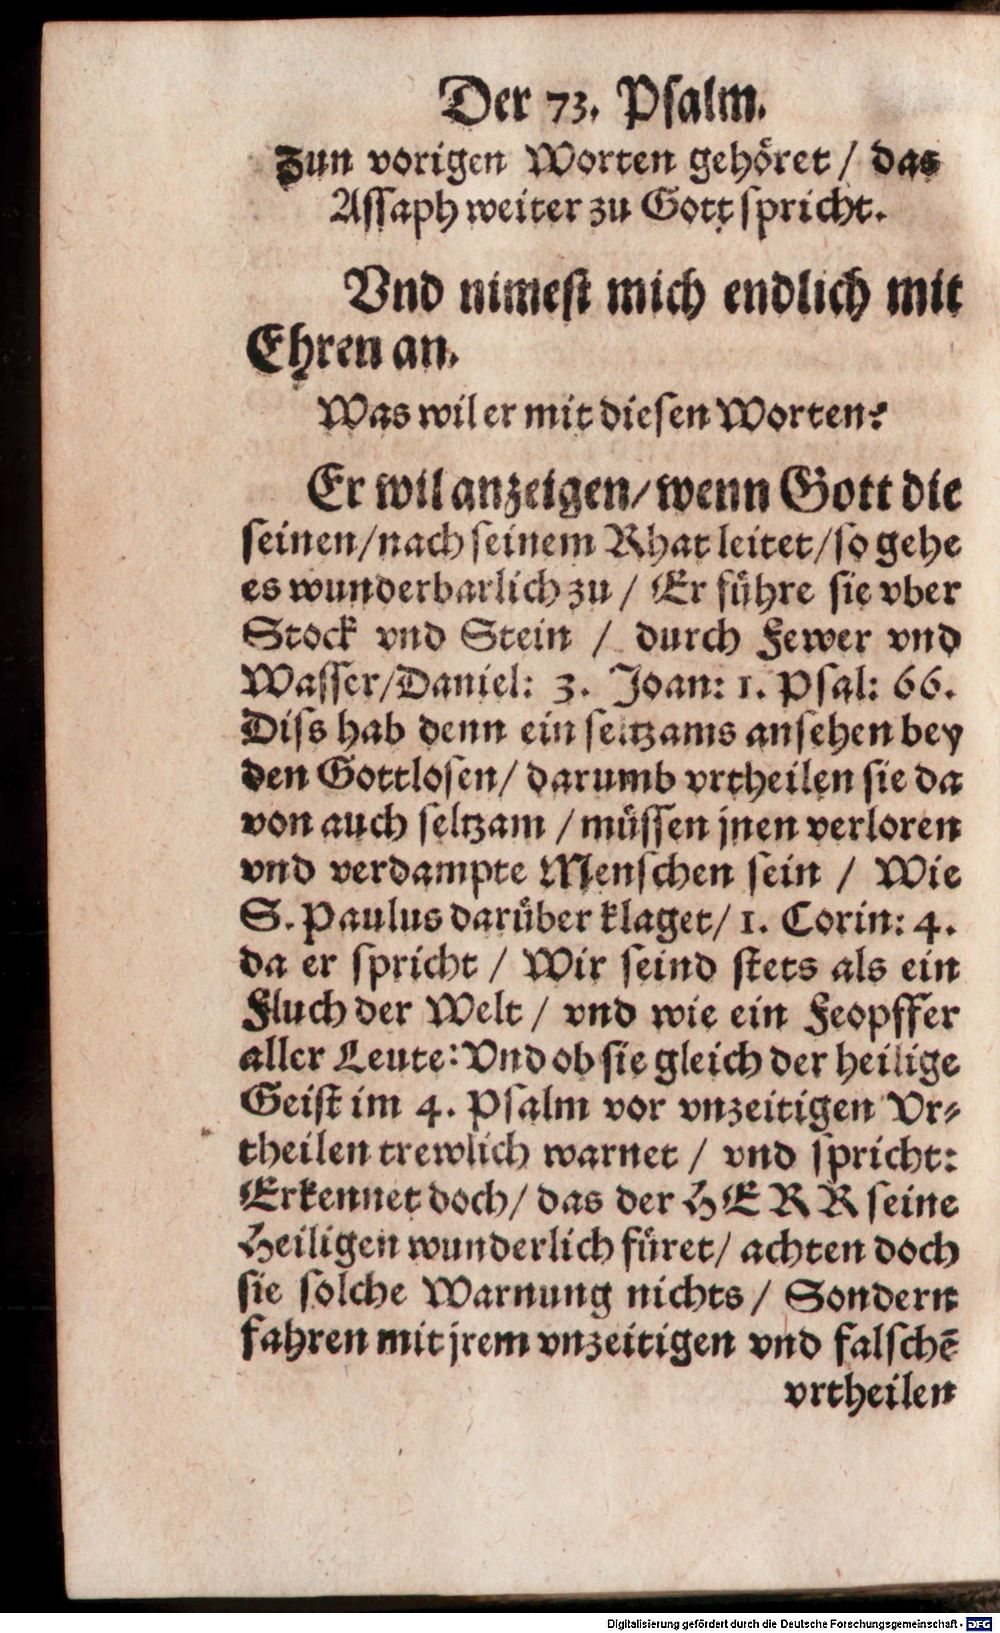 Der 73. Psalm.
Zun vorigen Worten gehöret / das
Assaph weiter zu Gott spricht.
Vnd nimest mich endlich mit
Ehren an.
Was wil er mit diesen Worten?
Er wil anzeigen / wenn Gott die
seinen / nach seinem Rhat leitet / so gehe
es wunderbarlich zu / Er führe sie vber
Stock vnd Stein / durch Fewer vnd
Wasser / Daniel: 3. Joan: 1. Psal: 66.
Diss hab denn ein seltzams ansehen bey
den Gottlosen / darumb vrtheilen sie da
von auch seltzam / müssen jnen verloren
vnd verdampte Menschen sein / Wie
S. Paulus darüber klaget / 1. Corin: 4.
da er spricht / Wir seind stets als ein
Fluch der Welt / vnd wie ein Feopffer
aller Leute: Vnd ob sie gleich der heilige
Geist im 4. Psalm vor vnzeitigen Vr-
theilen trewlich warnet / vnd spricht:
Erkennet doch / das der HERR seine
Heiligen wunderlich füret / achten doch
sie solche Warnung nichts / Sondern
fahren mit jrem vnzeitigen vnd falschē
vrtheilen
Digitalisierung gefördert durch die Deutsche Forschungsgemeinschaft - DFG